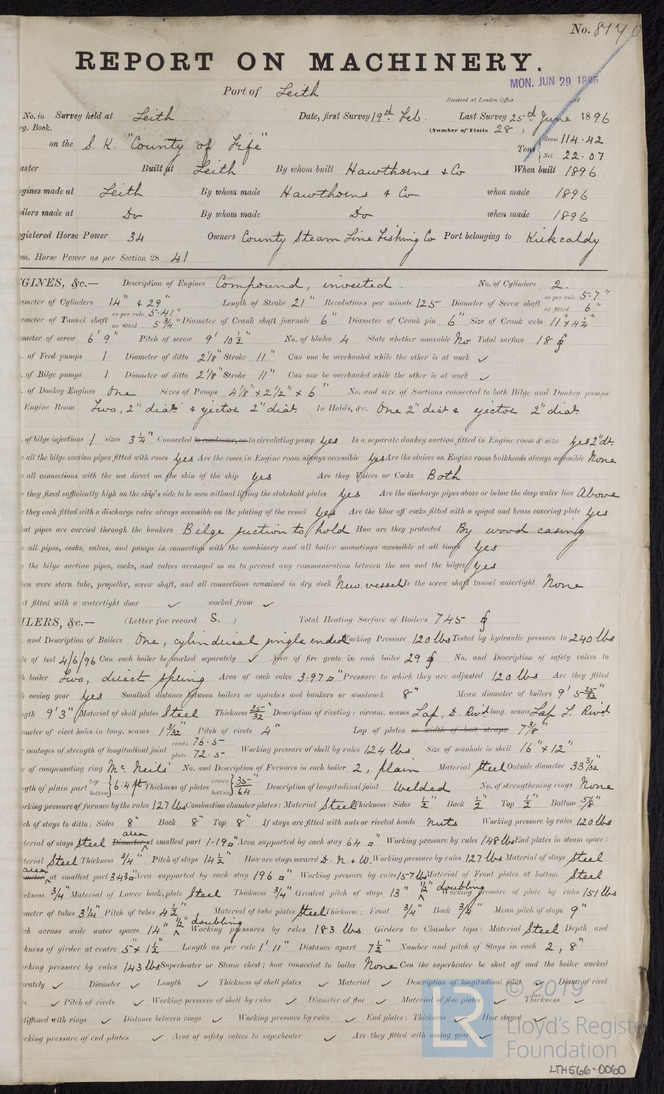 No. 8170
REPORT ON MACHINERY.
Port of Leith
MON. JUN 29 1896
Received at London Office
No. in Survey held at Leith Date, first Survey 19th Feb. Last Survey 25th June 1896
g. Book. (Number of Visits 28)
on the S.K. "County of Fife" Tons Gross 114.42 Net 22.07
aster Built at Leith By whom built Hawthorns & Co When built 1896
ngines made at Leith By whom made Hawthorns & Co when made 1896
oilers made at Do By whom made Do when made 1896
egistered Horse Power 34 Owners County Steam Line Fishing Co Port belonging to Kirkcaldy
m. Horse Power as per Section 28 41
GINES, &c.— Description of Engines Compound, inverted. No. of Cylinders 2.
ameter of Cylinders 14" & 29" Length of Stroke 21" Revolutions per minute 125 Diameter of Screw shaft as per rule 5.7" as fitted 6"
ameter of Tunnel shaft as per rule 5.41" as fitted 5¾" Diameter of Crank shaft journals 6" Diameter of Crank pin 6" Size of Crank webs 11" x 4¼"
ameter of screw 6' 9" Pitch of screw 9' 10½" No. of blades 4 State whether moveable No Total surface 18
. of Feed pumps 1 Diameter of ditto 2⅛" Stroke 11" Can one be overhauled while the other is at work ✓
. of Bilge pumps 1 Diameter of ditto 2⅛" Stroke 11" Can one be overhauled while the other is at work ✓
. of Donkey Engines One Sizes of Pumps 4⅛" x 2½" x 6" No. and size of Suctions connected to both Bilge and Donkey pumps
Engine Room Two, 2" diar & ejector 2" diar In Holds, &c. One 2" diar & ejector 2" diar
. of bilge injections 1 sizes 3¼" Connected to condenser, or to circulating pump yes Is a separate donkey suction fitted in Engine room & size yes 2" dr
e all the bilge suction pipes fitted with roses yes Are the roses in Engine room always accessible yes Are the sluices on Engine room bulkheads always accessible None
e all connections with the sea direct on the skin of the ship yes Are they Valves or Cocks Both
e they fixed sufficiently high on the ship's side to be seen without lifting the stokehold plates yes Are the discharge pipes above or below the deep water line Above
e they each fitted with a discharge valve always accessible on the plating of the vessel yes Are the blow off cocks fitted with a spigot and brass covering plate yes
hat pipes are carried through the bunkers Bilge suction to hold How are they protected By wood casing
e all pipes, cocks, valves, and pumps in connection with the machinery and all boiler mountings accessible at all times yes
e the bilge suction pipes, cocks, and valves arranged so as to prevent any communication between the sea and the bilges yes
hen were stern tube, propeller, screw shaft, and all connections examined in dry dock New vessel Is the screw shaft tunnel watertight None
it fitted with a watertight door ✓ worked from ✓
ILERS, &c.— (Letter for record S.) Total Heating Surface of Boilers 745
. and Description of Boilers One, cylindrical single ended Working Pressure 120 lbs Tested by hydraulic pressure to 240 lbs
te of test 4/6/96 Can each boiler be worked separately ✓ Area of fire grate in each boiler 29 No. and Description of safety valves to
h boiler Two, direct spring Area of each valve 3.97□" Pressure to which they are adjusted 120 lbs Are they fitted
h easing gear yes Smallest distance between boilers or uptakes and bunkers or woodwork 8" Mean diameter of boilers 9'
ngth 9' 3" Material of shell plates Steel Thickness 25/32 Description of riveting: circum. seams Lap, D. Riv'd long. seams Lap T. Riv'd
ameter of rivet holes in long. seams 1 3/32" Pitch of rivets 4" Lap of plates or width of butt straps 7⅛"
r centages of strength of longitudinal joint rivets 76.5 plate 72.5 Working pressure of shell by rules 124 lbs Size of manhole in shell 16" x 12"
e of compensating ring McNeils' No. and Description of Furnaces in each boiler 2, plain Material Steel Outside diameter 33
ngth of plain part top bottom 6.4 ft Thickness of plates crown bottom 35/64" Description of longitudinal joint Welded No. of strengthening rings None
orking pressure of furnace by the rules 127 lbs Combustion chamber plates: Material Steel Thickness: Sides ½" Back ½" Top ½" Bottom ⅝"
ch of stays to ditto: Sides 8" Back 8" Top 8" If stays are fitted with nuts or riveted heads Nuts Working pressure by rules 120 lbs
aterial of stays Steel Diameter area at smallest part 1.19□" Area supported by each stay 64□" Working pressure by rules 148 lbs End plates in steam space:
terial Steel Thickness ¾" Pitch of stays 14½" How are stays secured D. N. & W. Working pressure by rules 127 lbs Material of stays Steel
area at smallest part 3.43□" Area supported by each stay 196□" Working pressure by rules 157 lbs Material of Front plates at bottom Steel
ickness ¾" Material of Lower back plate Steel Thickness ¾" Greatest pitch of stays 13" ½" doubling Working pressure of plate by rules 151 lbs
ameter of tubes 3¼" Pitch of tubes 4½" Material of tube plates Steel Thickness: Front ¾" Back ¾" Mean pitch of stays 9"
ch across wide water spaces 14" ½" doubling Working pressures by rules 183 lbs Girders to Chamber tops: Material Steel Depth and
ckness of girder at centre 5" x 1½" Length as per rule 1' 11" Distance apart 7½" Number and pitch of Stays in each 2, 8"
orking pressure by rules 143 lbs Superheater or Steam chest; how connected to boiler None Can the superheater be shut off and the boiler worked
arately ✓ Diameter ✓ Length ✓ Thickness of shell plates ✓ Material ✓ Description of longitudinal joint Diam. of rivet
✓ Pitch of rivets ✓ Working pressure of shell by rules ✓ Diameter of flue ✓ Material of flue plates ✓ Thickness ✓
stiffened with rings ✓ Distance between rings ✓ Working pressure by rules ✓ End plates: Thickness ✓ How stayed ✓
rking pressure of end plates ✓ Area of safety valves to superheater ✓ Are they fitted with easing gear ✓
© 2019
Lloyd's Registe
Foundation
LTHE66-0060